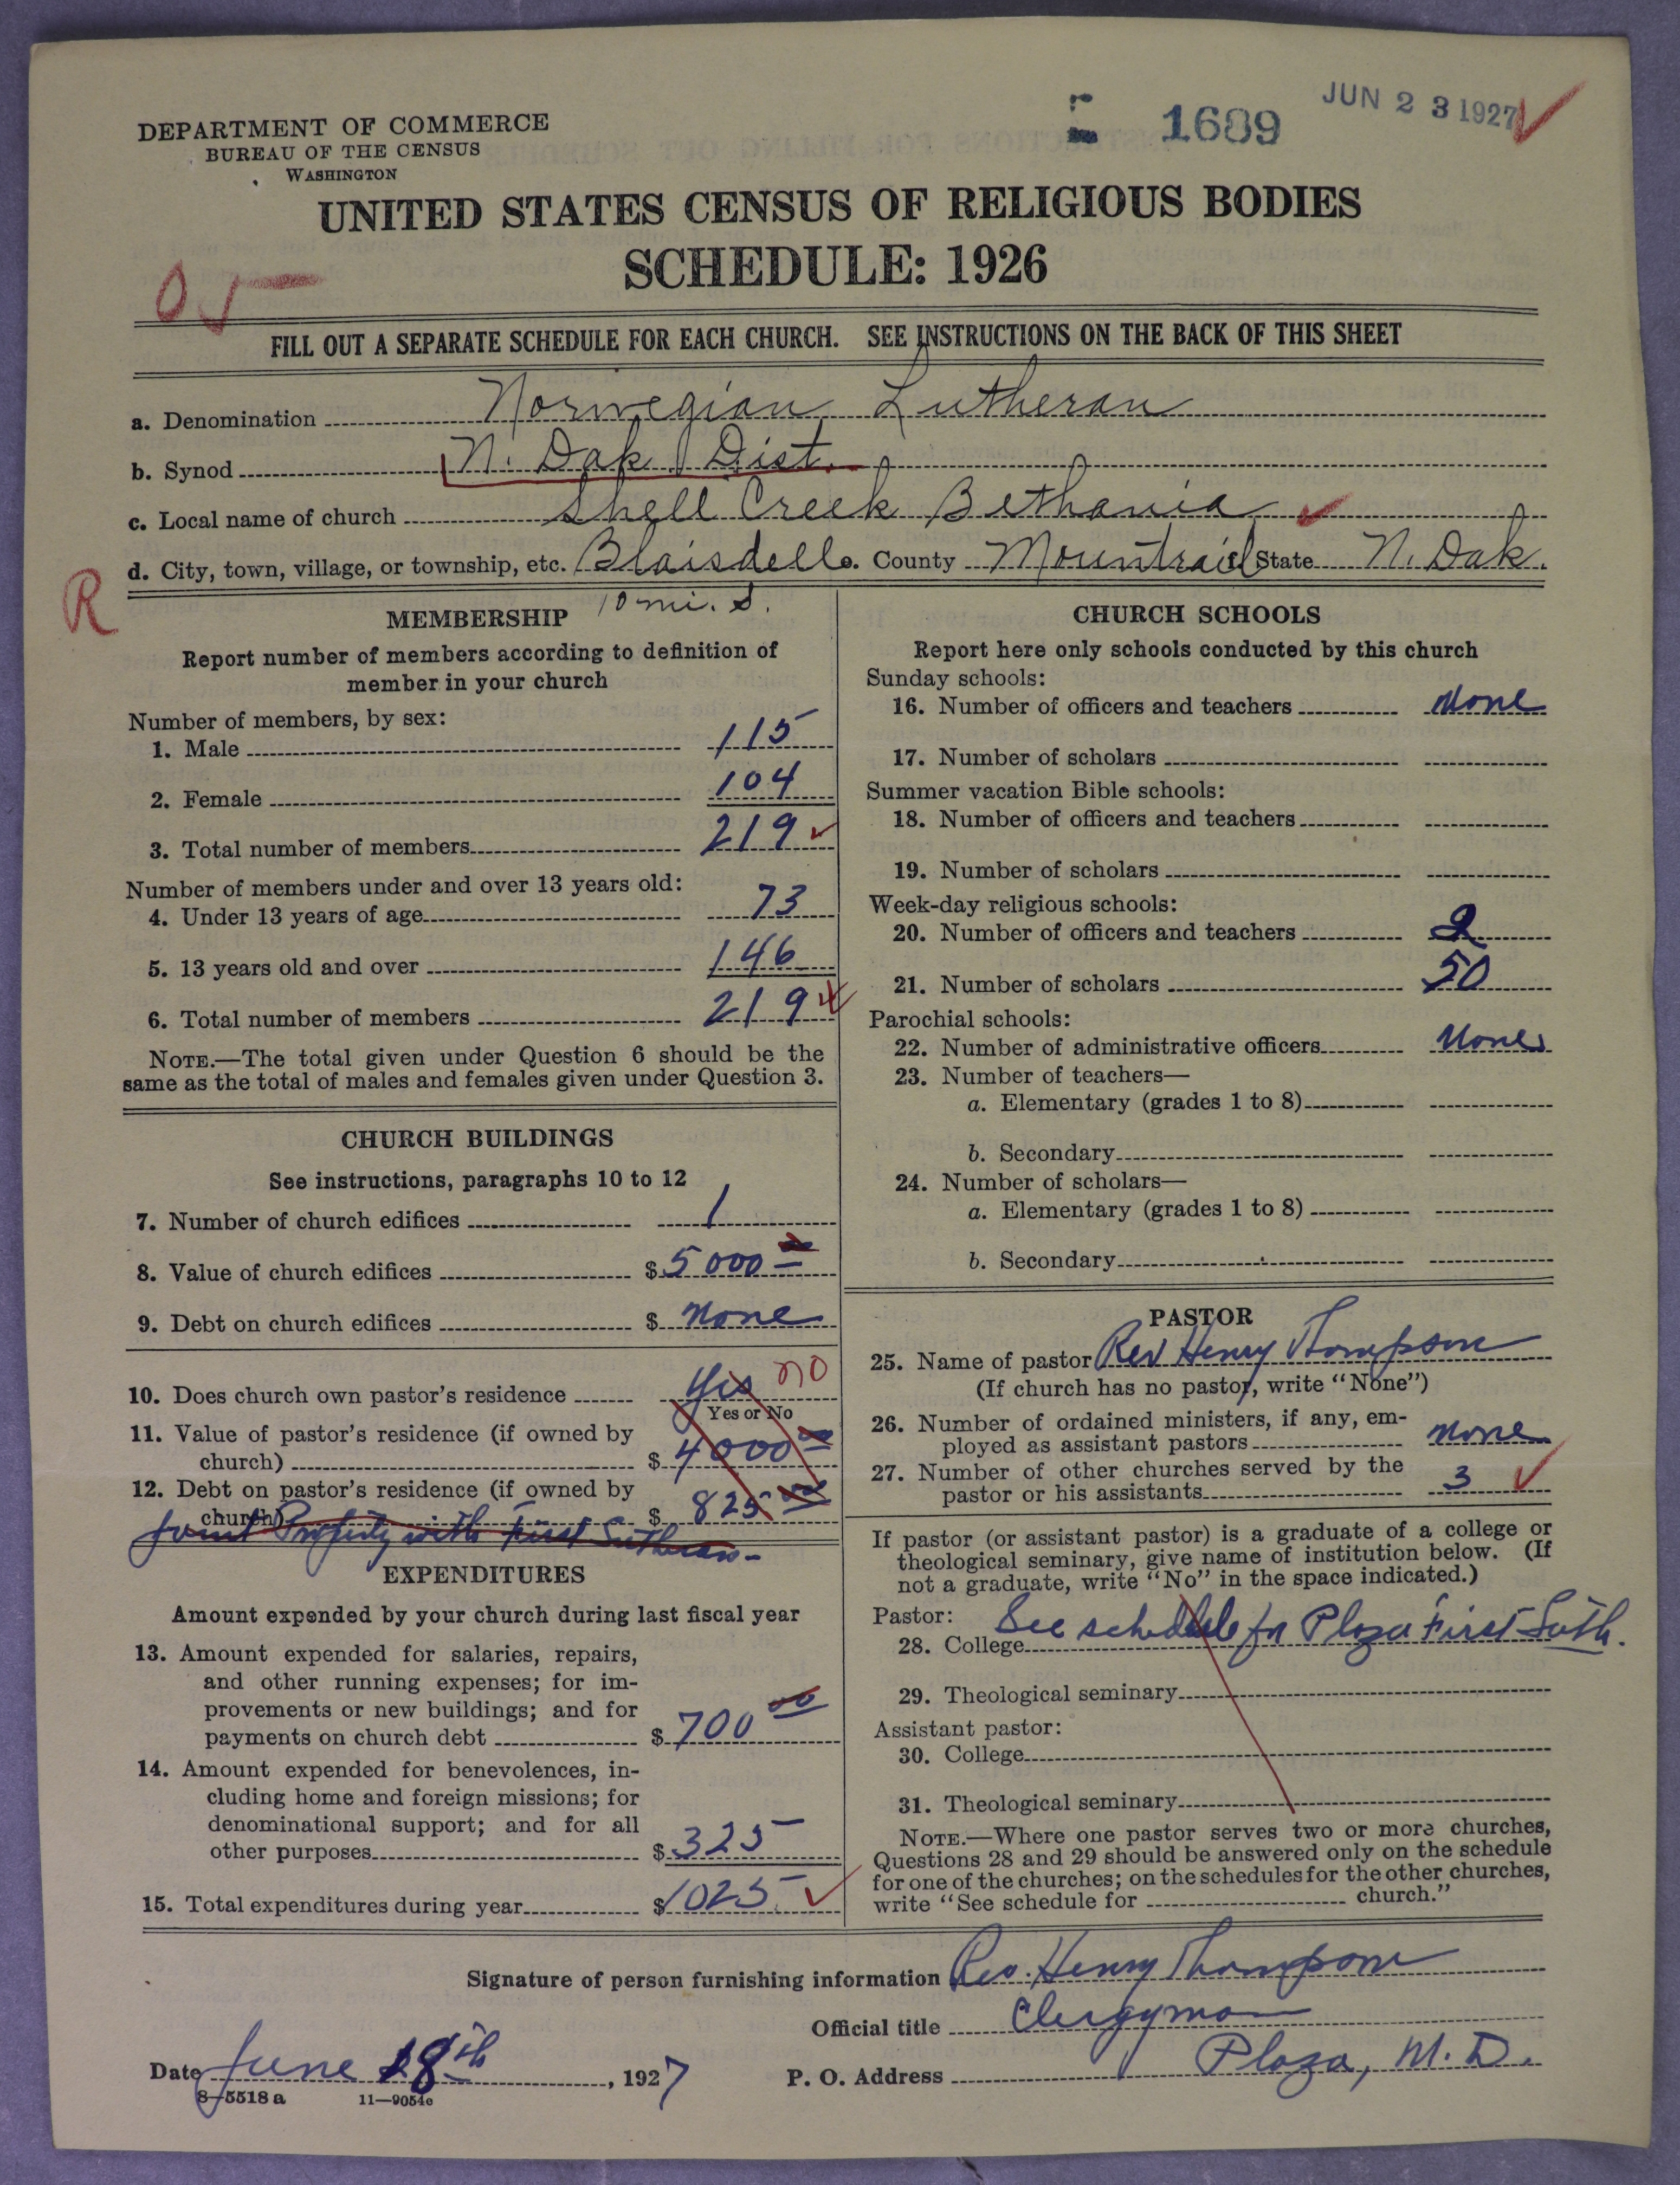 DEPARTMENT OF COMMERCE
BUREAU OF THE CENSUS
WASHINGTON
1689
JUN 23 1927
UNITED STATES CENSUS OF RELIGIOUS BODIES
SCHEDULE: 1926
FILL OUT A SEPARATE SCHEDULE FOR EACH CHURCH. SEE INSTRUCTIONS ON THE BACK OF THIS SHEET
a. Denomination Norwegian Lutheran
b. Synod N. Dak Dist.
c. Local name of church Shell Creek Bethania
d. City, town, village, or township, etc. Blaisdell County Mountrail State N. Dak.
R
10 mi. S.
MEMBERSHIP
Report number of members according to definition of
member in your church
Number of members, by sex:
1. Male 115
2. Female 104
3. Total number of members 219
Number of members under and over 13 years old:
4. Under 13 years of age 73
5. 13 years old and over 146
6. Total number of members 219
NOTE.—The total given under Question 6 should be the
same as the total of males and females given under Question 3.
CHURCH BUILDINGS
See instructions, paragraphs 10 to 12
7. Number of church edifices 1
8. Value of church edifices $ 5000
9. Debt on church edifices $ None
10. Does church own pastor's residence Yes no
Yes or No
11. Value of pastor's residence (if owned by
church) $ 4000 00
12. Debt on pastor's residence (if owned by
church) $ 825 00
Joint Property with First Lutheran
EXPENDITURES
Amount expended by your church during last fiscal year
13. Amount expended for salaries, repairs,
and other running expenses; for im-
provements or new buildings; and for
payments on church debt $ 700 00
14. Amount expended for benevolences, in-
cluding home and foreign missions; for
denominational support; and for all
other purposes $ 325
15. Total expenditures during year $ 1025
CHURCH SCHOOLS
Report here only schools conducted by this church
Sunday schools:
16. Number of officers and teachers None
17. Number of scholars
Summer vacation Bible schools:
18. Number of officers and teachers
19. Number of scholars
Week-day religious schools:
20. Number of officers and teachers 2
21. Number of scholars 50
Parochial schools:
22. Number of administrative officers None
23. Number of teachers—
a. Elementary (grades 1 to 8)
b. Secondary
24. Number of scholars—
a. Elementary (grades 1 to 8)
b. Secondary
PASTOR
25. Name of pastor Rev Henry Thompson
(If church has no pastor, write "None")
26. Number of ordained ministers, if any, em-
ployed as assistant pastors None
27. Number of other churches served by the
pastor or his assistants 3
If pastor (or assistant pastor) is a graduate of a college or
theological seminary, give name of institution below. (If
not a graduate, write "No" in the space indicated.)
Pastor:
28. College See schedule for Plaza First Luth.
29. Theological seminary
Assistant pastor:
30. College
31. Theological seminary
NOTE.—Where one pastor serves two or more churches,
Questions 28 and 29 should be answered only on the schedule
for one of the churches; on the schedules for the other churches,
write "See schedule for church."
Signature of person furnishing information Rev. Henry Thompson
Official title Clergyman
Date June 18th, 1927
P. O. Address Plaza, N. D.
8—5518 a 11—9054e